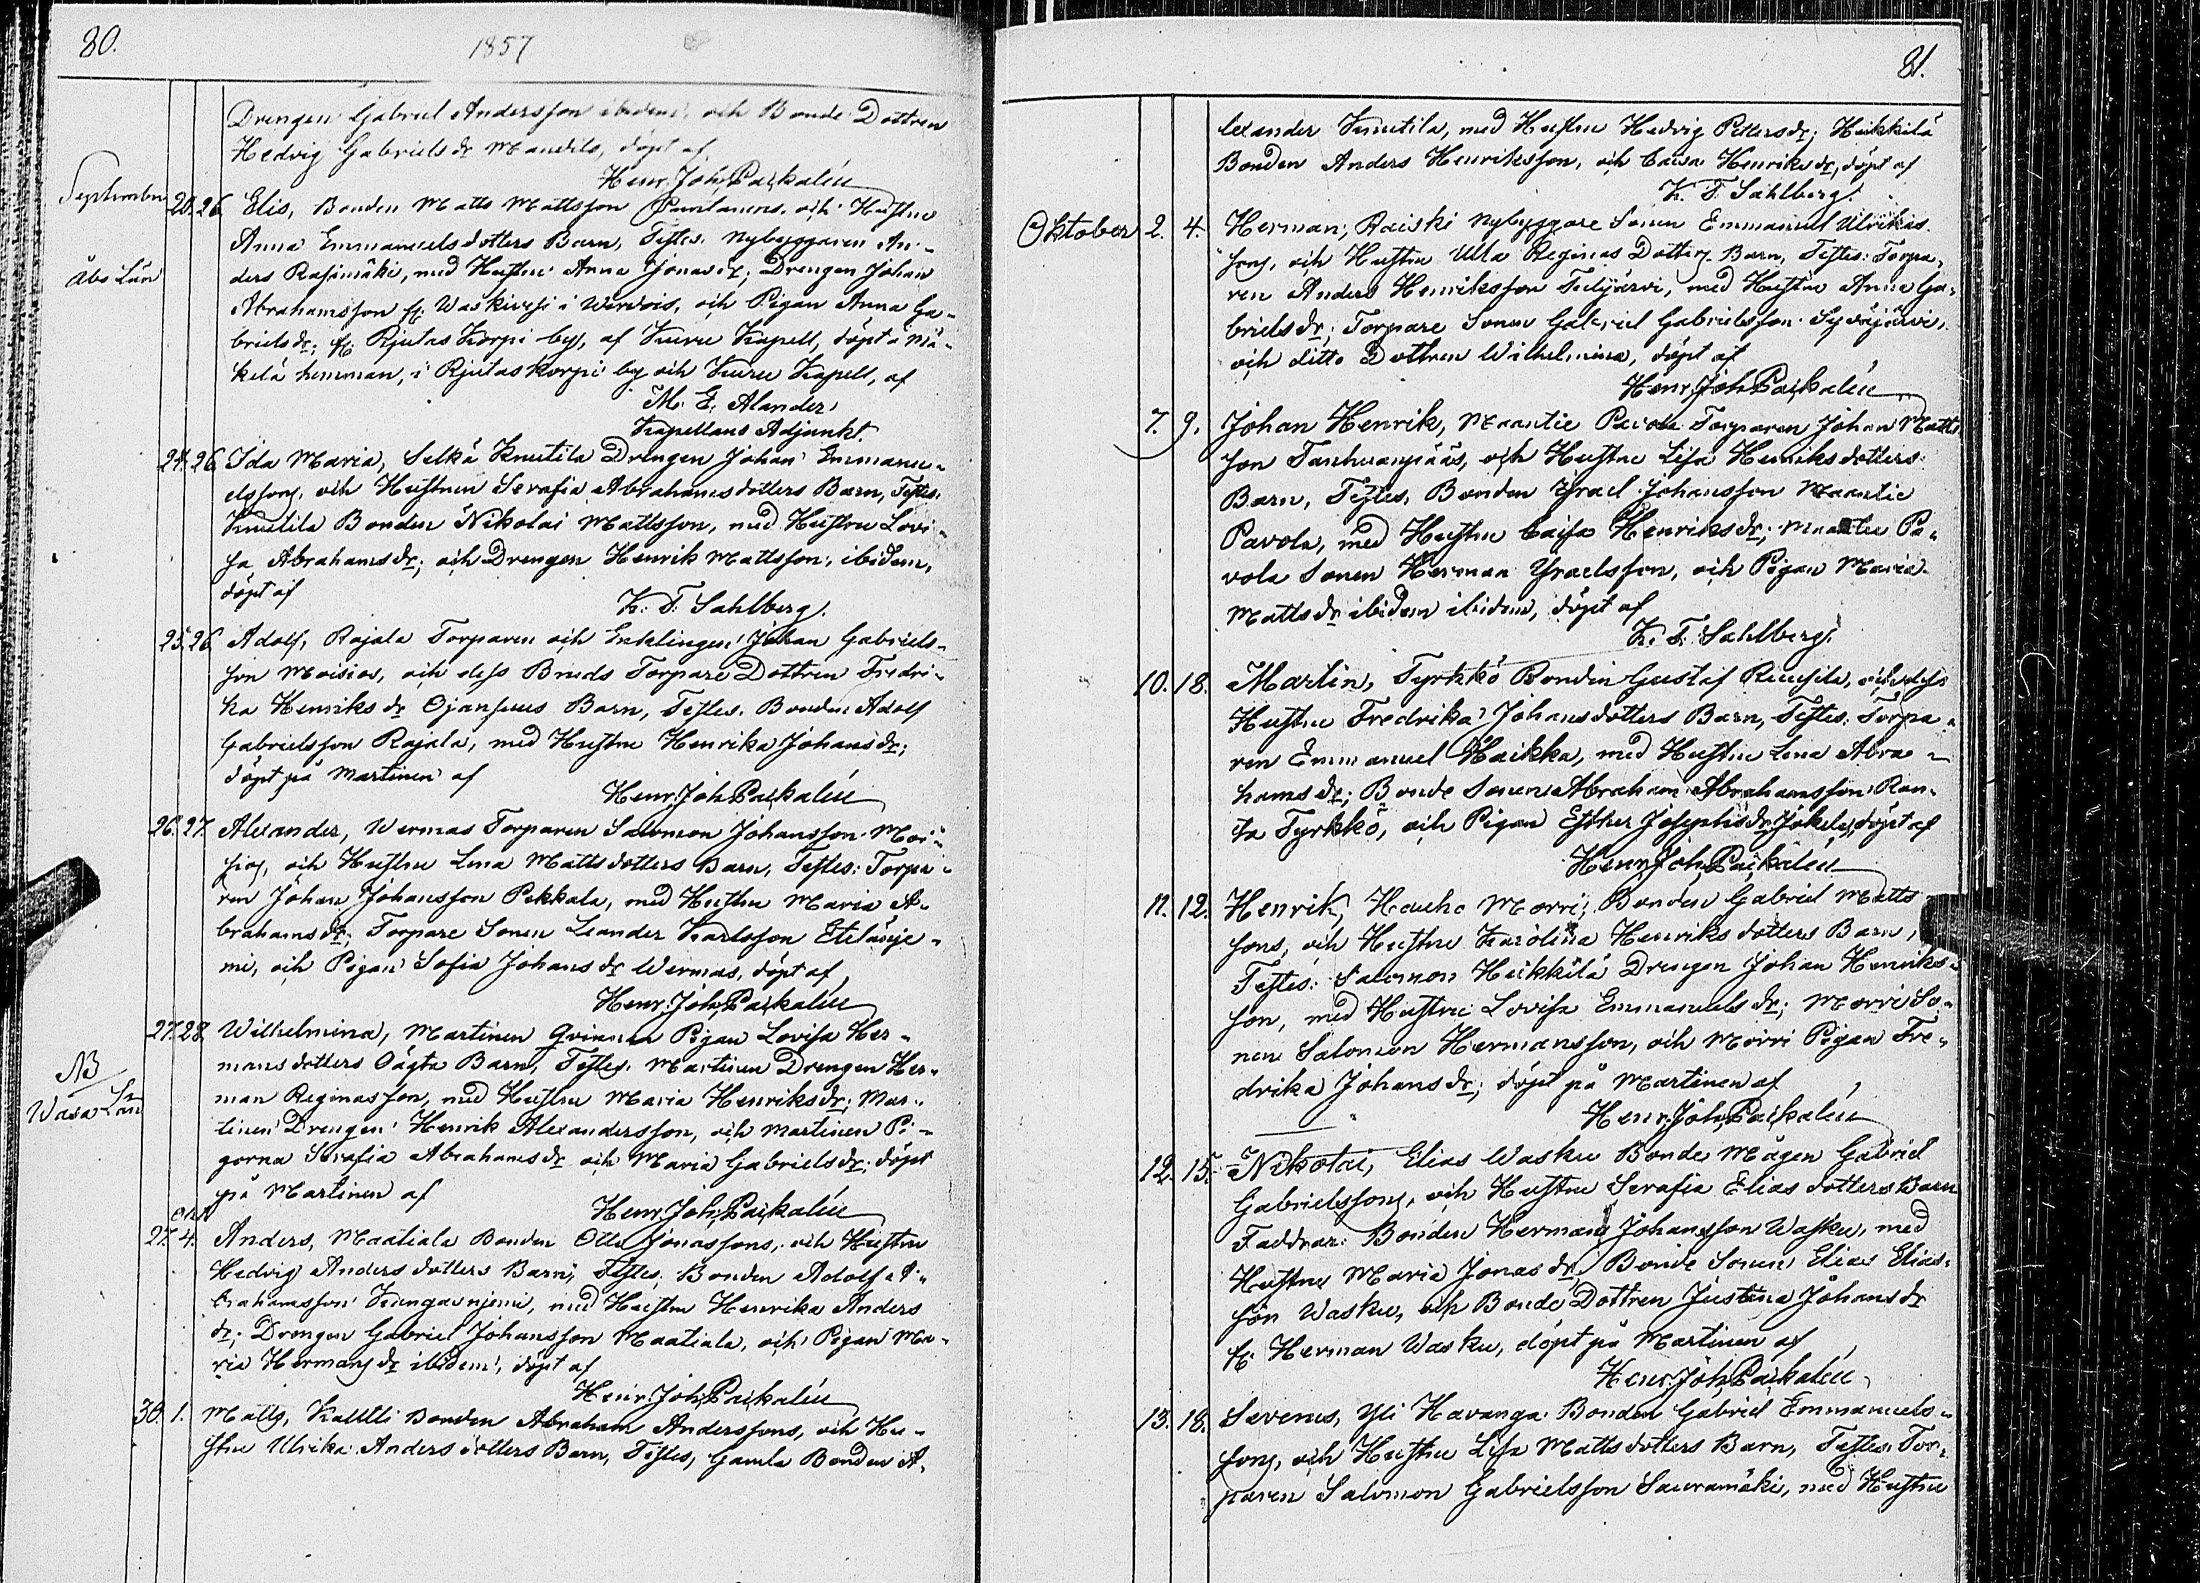 80.
1857
Drengen Gabriel Andersson ibidem, och Bonde Dottren
Hedvig Gabriels dr Mandila, döpt af
Henr. Joh. Paikalén
September 20. 26. Elis, Bonden Matts Mattsson och Hustru
Anna Emmanuelsdotters Barn, Testes. Nybyggaren An-
Åbo Län
ders Rasimäki, med Hustru Anna Jonas dr; Drengen Johan
Abrahamsson fr. Waskivesi i Wirdois, och Pigan Anna Ga-
briels dr; fr. Rjutas Korpi by, af Kuru Kapell, döpt i Mä-
kelä hemman, i Rjutaskorpi by och Kuru Kapell, af
M. E. Alander,
Kapellans Adjunkt.
24. 26. Ida Maria, Selkä Knutila Drengen Johan Emmanu-
elssons, och Hustrun Serafia Abrahamsdotters Barn, Testes.
Knutila Bonden Nikolai Mattsson, med Hustru Lovi-
sa Abrahams dr; och Drengen Henrik Mattsson, ibidem,
döpt af
K. F. Sahlberg.
25. 26. Adolf, Rajala Torparen och Enklingen Johan Gabriels-
son Moisios, och dess Bruds Torpare Dottren Fredri-
ka Henriks dr Ojansuus Barn, Testes. Bonden Adolf
Gabrielsson Rajala, med Hustru Henrika Johans dr;
döpt på Martinen af
Henr. Joh. Paikalén
26. 27. Alexander, Wermas Torparen Salomon Johansson Moi-
sios, och Hustru Lena Mattsdotters Barn, Testes: Torpa-
ren Johan Johansson Pekkala, med Hustru Maria A-
brahams dr; Torpare Sonen Leander Karlsson Etelänie-
mi, och Pigan Sofia Johans dr Wermas, döpt af
Henr. Joh. Paikalén
27. 28. Wilhelmina, Martinen Qvinnan Pigan Lovisa Her-
mansdotters Oägta Barn, Testes. Martinen Drengen Her-
NB
Wasa Län
man Reginasson, med Hustru Maria Henriks dr; Mar-
tinen Drengen Henrik Alexandersson, och Martinen Pi-
gorna Serafia Abrahams dr och Maria Gabriels dr; döpt
på Martinen af
Henr. Joh. Paikalén
27. 4. Anders, Maatiala Bonden Otto Jonassons, och Hustru
Hedvig Anders dotters Barn, Testes. Bonden Adolf A-
brahamsson Kangasniemi, med Hustru Henrika Anders
dr; Drengen Gabriel Johansson Maatiala, och Pigan Ma-
ria Hermans dr ibidem, döpt af
Henr. Joh. Paikalén
30. 1. Matts, Kallti Bonden Abraham Anderssons, och Hu-
stru Ulrika Anders dotters Barn, Testes, Gamla Bonden A-
81.
lexander Knutila, med Hustru Hedvig Petters dr; Heikkilä
Bonden Anders Henriksson, och Caisa Henriks dr, döpt af
K. F. Sahlberg.
Oktober 2. 4. Herman, Raiski Nybyggare Sonen Emmanuel Ulrikas
sons, och Hustru Ulla Reginas Dotters Barn, Testes: Torpa-
ren Anders Henriksson Tulijärvi, med Hustru Anna Ga-
briels dr; Torpare Sonen Gabriel Gabrielsson Syväjärvi,
och ditto Dottren Wilhelmina, döpt af
Henr. Joh. Paikalén
7. 9. Johan Henrik, Maantie Pavola Torparen Johan Matts
son Tanhuanpääs, och Hustru Lisa Henriksdotters
Barn, Testes. Bonden Israel Johansson Maantie
Pavola, med Hustru Caisa Henriks dr; Maantie Pa-
vola Sonen Herman Israelsson, och Pigan Maria
Matts dr ibidem ibidem, döpt af
K. F. Sahlberg.
10. 18. Martin, Tyrkkö Bonden Gustaf, och dess
Hustru Fredrika Johansdotters Barn, Testes. Torpa-
ren Emmanuel Haikka, med Hustru Lena Abra-
hams dr; Bonde Sonen Abraham Abrahamsson Ran-
ta Tyrkkö, och Pigan Esther Josephs dr Jokela, döpt af
Henr. Joh. Paikalén
11. 12. Henrik, Hauho Morri, Bonden Gabriel Matts
sons, och Hustru Karolina Henriksdotters Barn,
Testes. Salomon Heikkilä Drengen Johan Henriks-
son, med Hustru Lovisa Emmanuels dr; Morri So-
nen Salomon Hermansson, och Morri Pigan Fre-
drika Johans dr; döpt på Martinen af
Henr. Joh. Paikalén
12. 15. Nikolai, Elias Wasku Bonde Mågen Gabriel
Gabrielssons, och Hustru Serafia Elias dotters Barn
Faddrar: Bonden Herman Johansson Wasku, med
Hustru Maria Jonas dr; Bonde Sonen Elias Elias-
son Wasku, och Bonde Dottren Justina Johans dr
fr. Herman Wasku, döpt på Martinen af
Henr. Joh. Paikalén
13. 18. Severus, Yli Havanga Bonden Gabriel Emmanuels-
sons, och Hustru Lisa Mattsdotters Barn, Testes. Tor-
paren Salomon Gabrielsson Sauramäki, med Hustru